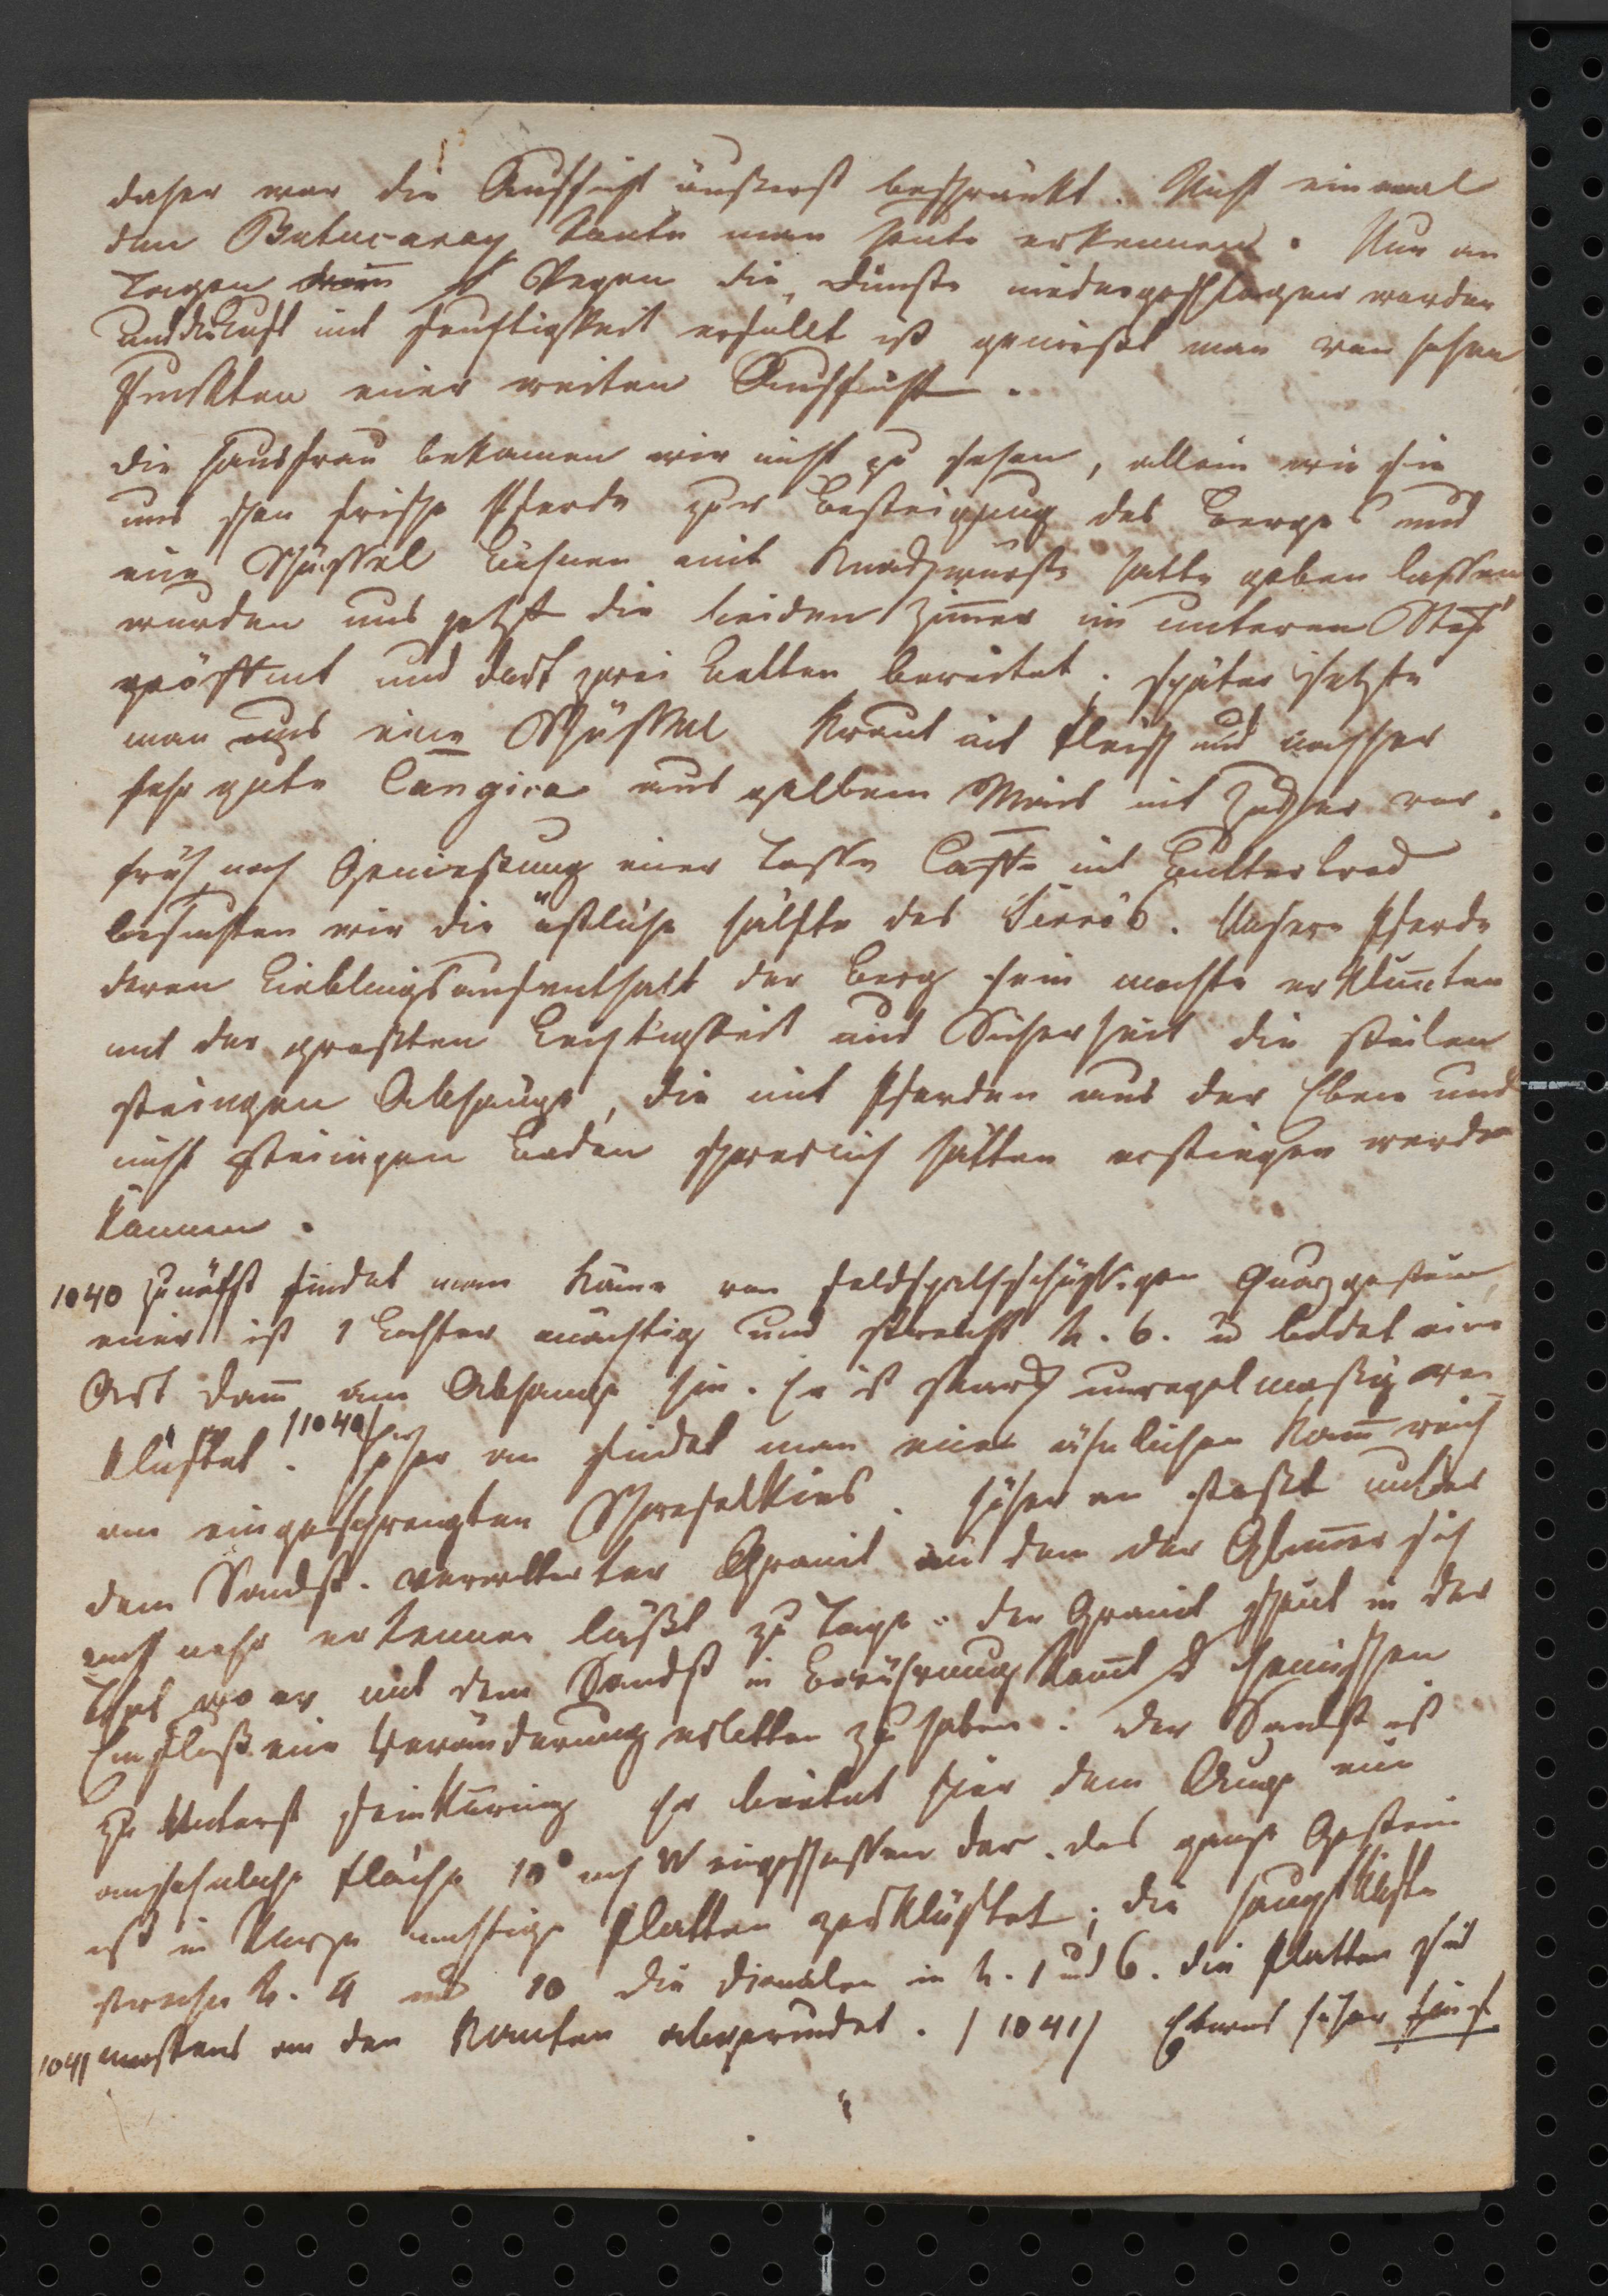 daher war die Aussicht äußerst beschränkt. Nicht einmal
den Butucaray konte man heute erkennen. Nur an
Tagen wenn d Regen die Dünste niedergeschlagen werden
und die Luft mit Feuchtigkeit erfullt ist genießt man von hohen
Puckten einer weiten Aussicht.
die Hausfrau bekamen wir nicht zu sehen, allein wie sie
uns schon frische Pferde zur Besteigung des Berges und
eine Schüssel Bohnen mit Knackwurste hatte geben lassen
wurden uns jetzt die beiden Zimer im unteren Stock
geöffnet und dort zwei Betten bereitet; später setzte
man uns eine Schüssel Kraut mit Fleisch und nachher
sehr gute Cangica aus gelbem Mais mit Zucker vor.
früh nach Genießung einer Tasse Caffe mit Butterbrod
besuchten wir die östliche Hälfte des Serros. Unsere Pferde
deren Lieblingsaufenthalt der Berg sein mochte erklimten
mit der großten Leichtigkeit und Sicherheit die steilen
steinigen Abhänge, die mit Pferden aus der Ebene und
nicht steinigen Boden schwerlich hätten erstiegen werden
konnen.
1040 zunächst findet man Käme von feldspathhaltigen Quarzgestein
einer ist 1 Lachter mächtig und streicht h. 6. u bildet eine
Art Dam am Abhange hin. Er ist stark unregelmaßig zer
klüftet. /1040/ Höher an findet man einen ähnlichen Kam reich
an eingesprengten Schwefelkies. Höher an steht unter
dem Sandst. verwitterter Granit in dem der Glimer sich
noch mehr erkennen läßt zu Tage. der Granit scheint in der
That wo er mit dem Sandst in Berührung komt d chemischen
Einfluß eine Veränderung erlitten zu haben. Der Sandst ist
zu Unterst feinkörnig Er bietet hier dem Auge eine
ansehnliche Fläche 10° nach W eingeschossen dar. das ganze Gestein
ist in mächtige Platten zerklüftet; die Hauptklüfte
streichen h. 4 und 10 die in h. 1 und 6. die Platten sind
1041 meistens an den Kanten abgerundet. /1041/ Etwas höher